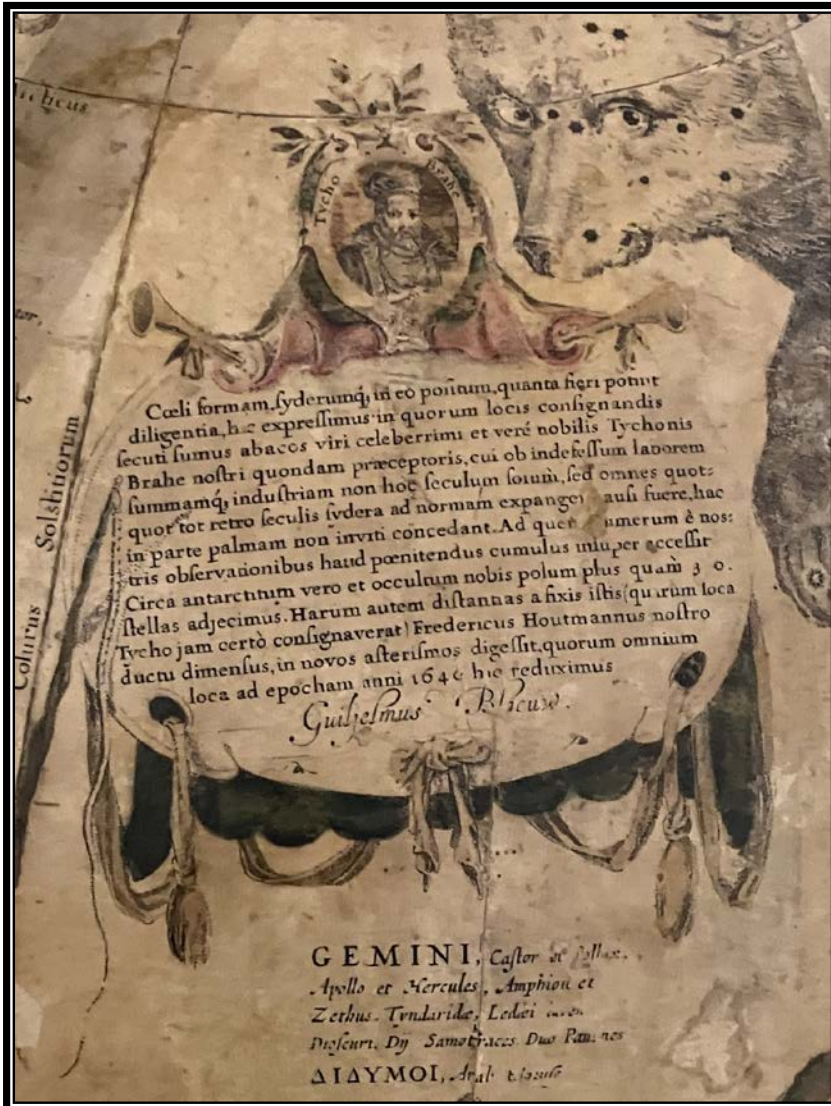 cticus
Tycho Brahe
Solstitiorum
Colurus
Cœli formam, syderumq́; in eo positum, quanta fieri potuit
diligentia, hic expressimus in quorum locis consignandis
secuti sumus abacos viri celeberrimi et veré nobilis Tychonis
Brahe nostri quondam præceptoris, cui ob indefessum laborem
summamq́; industriam non hoc seculum solum̀, sed omnes quot=
quot tot retro seculis sydera ad normam expangere ausi fuere, hac
in parte palmam non inviti concedant. Ad quem numerum è nos=
tris observationibus haud pœnitendus cumulus insuper accessit
Circa antarcticum vero et occultum nobis polum plus quam̀ 3 0 .
stellas adjecimus. Harum autem distantias a fixis istis (quarum loca
Tycho jam certò consignaverat) Fredericus Houtmannus nostro
ductu dimensus, in novos asterismos digessit, quorum omnium
loca ad epocham anni 1640 hic reduximus
Guiljelmus Blaeuw.
GEMINI, Castor et Pollux.
Apollo et Hercules, Amphion et
Zethus. Tyndaridæ, Ledæi
Dioscuri. Dij Samothraces. Duo
ΔΙΔΥΜΟΙ, Arab.